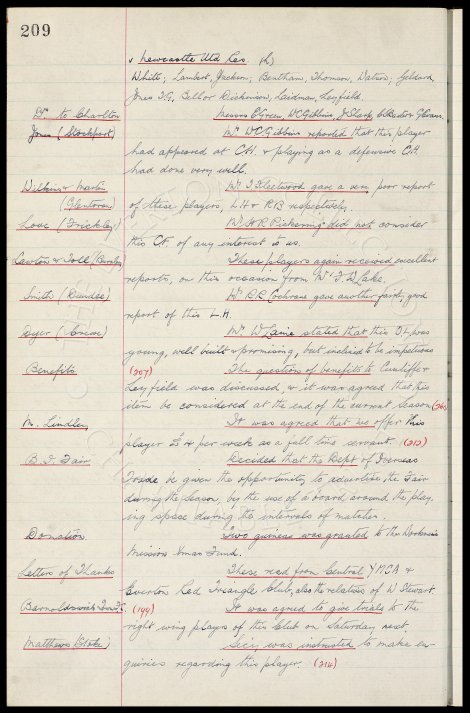 209
v Newcastle Utd Res. (h)
White; Lambert, Jackson; Bentham, Thomson, Watson; Geldard,
Jones T.G., Bell or Dickinson, Laidman, Leyfield.
to Charlton
Messrs E Green, W C Gibbins, J Sharp,
Jones (Stockport)
Mr. W C Gibbins reported that this player
had appeared at C.H. & playing as a defensive C.H.
had done very well.
& Martin
Mr. T Fleetwood gave a very poor report
(Glentoran)
of these players, L H & R B respectively.
Love (Frickley)
Mr. H R Pickering did not consider
this C.F. of any interest to us.
Lawton & (Burnley)
These players again received excellent
reports, on this occasion from Mr. Lake.
Smith (Dundee)
Mr. Cochrane gave another fairly good
report of this L.H.
Dyer (Crewe)
Mr. W Laine stated that this was
young, well built & promising, but inclined to be impetuous
Benefits
(207) The question of benefits to Cunliffe &
Leyfield was discussed, & it was agreed that this
item be considered at the end of the current season
Lindley
It was agreed that we offer this
player £4 per week as a full time servant. (212)
B. I. Fair
Decided that the Dept of Overseas
Trade be given the opportunity to advertise the Fair
during the season, by the use of a board around the play-
ing space during the intervals of matches.
Donation
Two guineas was granted to the
Mission Xmas Fund.
Letters of Thanks
These read from Central YMCA &
Everton Red Triangle Club, also the relatives of W Stewart.
Barnoldswick
(199) It was agreed to give trials to the
right wing players of this Club on Saturday next
Matthews (Stoke)
Secy was instructed to make en-
quiries regarding this player. (214)